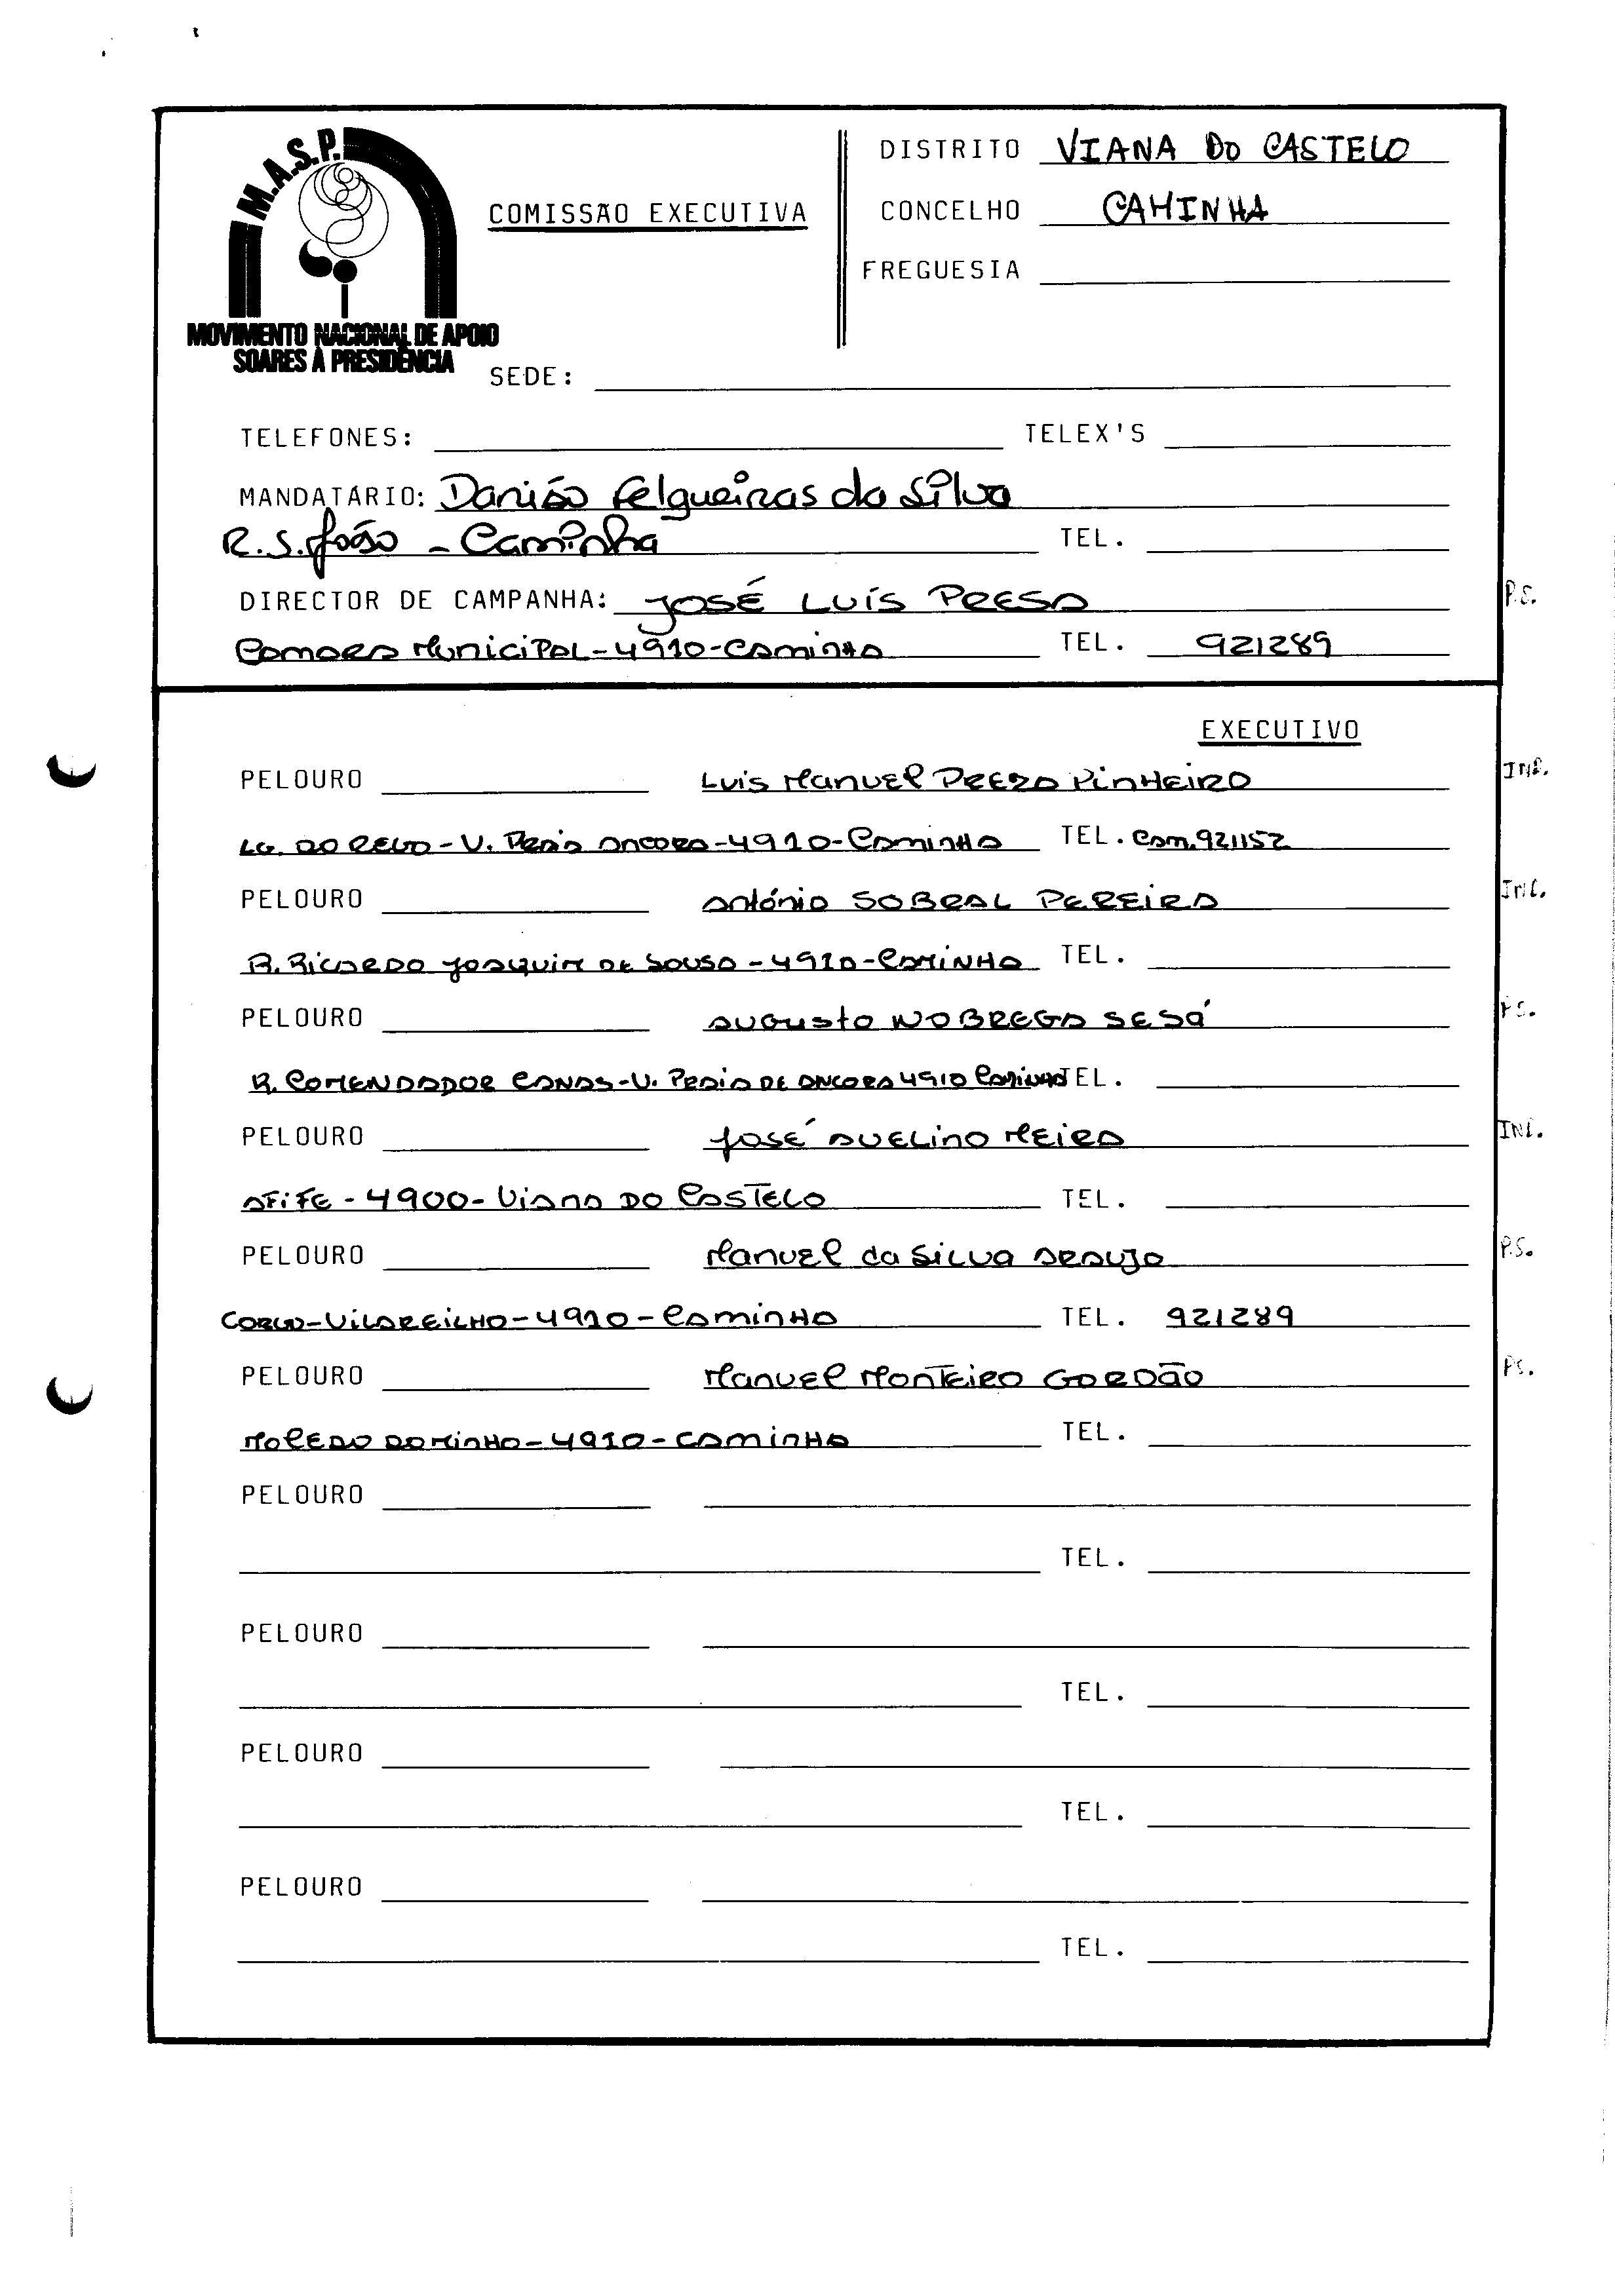 M.A.S.P.
MOVIMENTO NACIONAL DE APOIO
SOARES À PRESIDÊNCIA
COMISSÃO EXECUTIVA
DISTRITO VIANA DO CASTELO
CONCELHO CAMINHA
FREGUESIA
SEDE:
TELEFONES: TELEX'S
MANDATÁRIO: Danião Felgueiras da Silva
R. S. João - Caminha TEL.
DIRECTOR DE CAMPANHA: JOSÉ LUÍS PRESA P.S.
Camara Municipal - 4910 - Caminha TEL. 921289
EXECUTIVO
PELOURO Luis Manuel Prezo Pinheiro IND.
LG. DO - V. Praia Ancora - 4910 - Caminha TEL. Cam. 921152
PELOURO António SOBRAL PEREIRA IND.
R. Ricardo Joaquim de Sousa - 4910 - Caminha TEL.
PELOURO Augusto NOBREGA SESÁ P.S.
R. COMENDADOR - V. Praia de Ancora 4910 Caminha TEL.
PELOURO José Avelino Meira IND.
AFIFE - 4900 - Viana do Castelo TEL.
PELOURO Manuel da Silva Araujo P.S.
- Vilarelho - 4910 - Caminha TEL. 921289
PELOURO Manuel Monteiro Gordão P.S.
Moledo do Minho - 4910 - Caminha TEL.
PELOURO
TEL.
PELOURO
TEL.
PELOURO
TEL.
PELOURO
TEL.